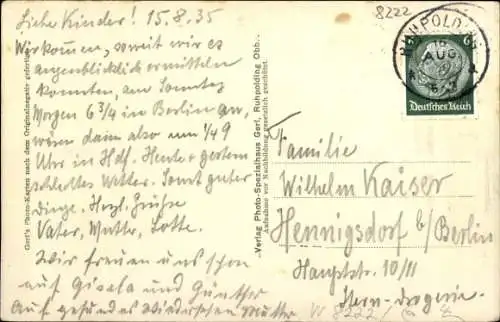 Liebe Kinder! 15.8.35
Wir kommen, soweit wir es
augenblicklich ermitteln
konnten, am Sonntag
Morgen 6 3/4 in Berlin an,
wären dann also um 1/49
Uhr in Hdf. Heute + gestern
schlechtes Wetter. Sonst guter
Dinge. Herzl. Grüße
Vater, Mutter, Lotte.
Wir freuen uns schon
auf Gisela und Günther
Auf gesundes Wiedersehen Mutter
Gerl's Photo-Karten nach dem Originalnegativ gefertigt
Verlag Photo-Spezialhaus Gerl, Ruhpolding Obb.
Aufnahme vor Nachbildung gesetzlich geschützt
8222
RUHPOLDING
16
AUG.
6
Deutsches Reich
Familie
Wilhelm Kaiser
Hennigsdorf b/Berlin
Hauptstr. 10/11
Stern-Drogerie
W 8222/